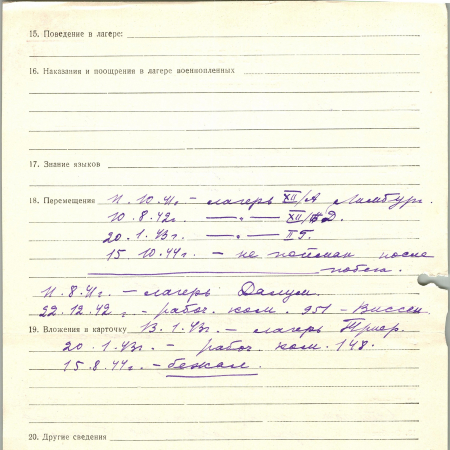 15. Поведение в лагере:
16. Наказания и поощрения в лагере военнопленных
17. Знание языков
18. Перемещение 11.10.41г. – лагерь XII/А Лимбург.
10.8.42г. —„— XII/Д.
20.1.43г. —„— II Г.
15.10.44г. – не пойман после
побега.
11.8.41г. – лагерь Далум.
22.12.42г. – рабоч. ком. 951 – Виссен
19. Вложения в карточку 13.1.43г. – лагерь Трир.
20.1.43г. – рабоч ком. 148.
15.8.44г. – бежал.
20. Другие сведения